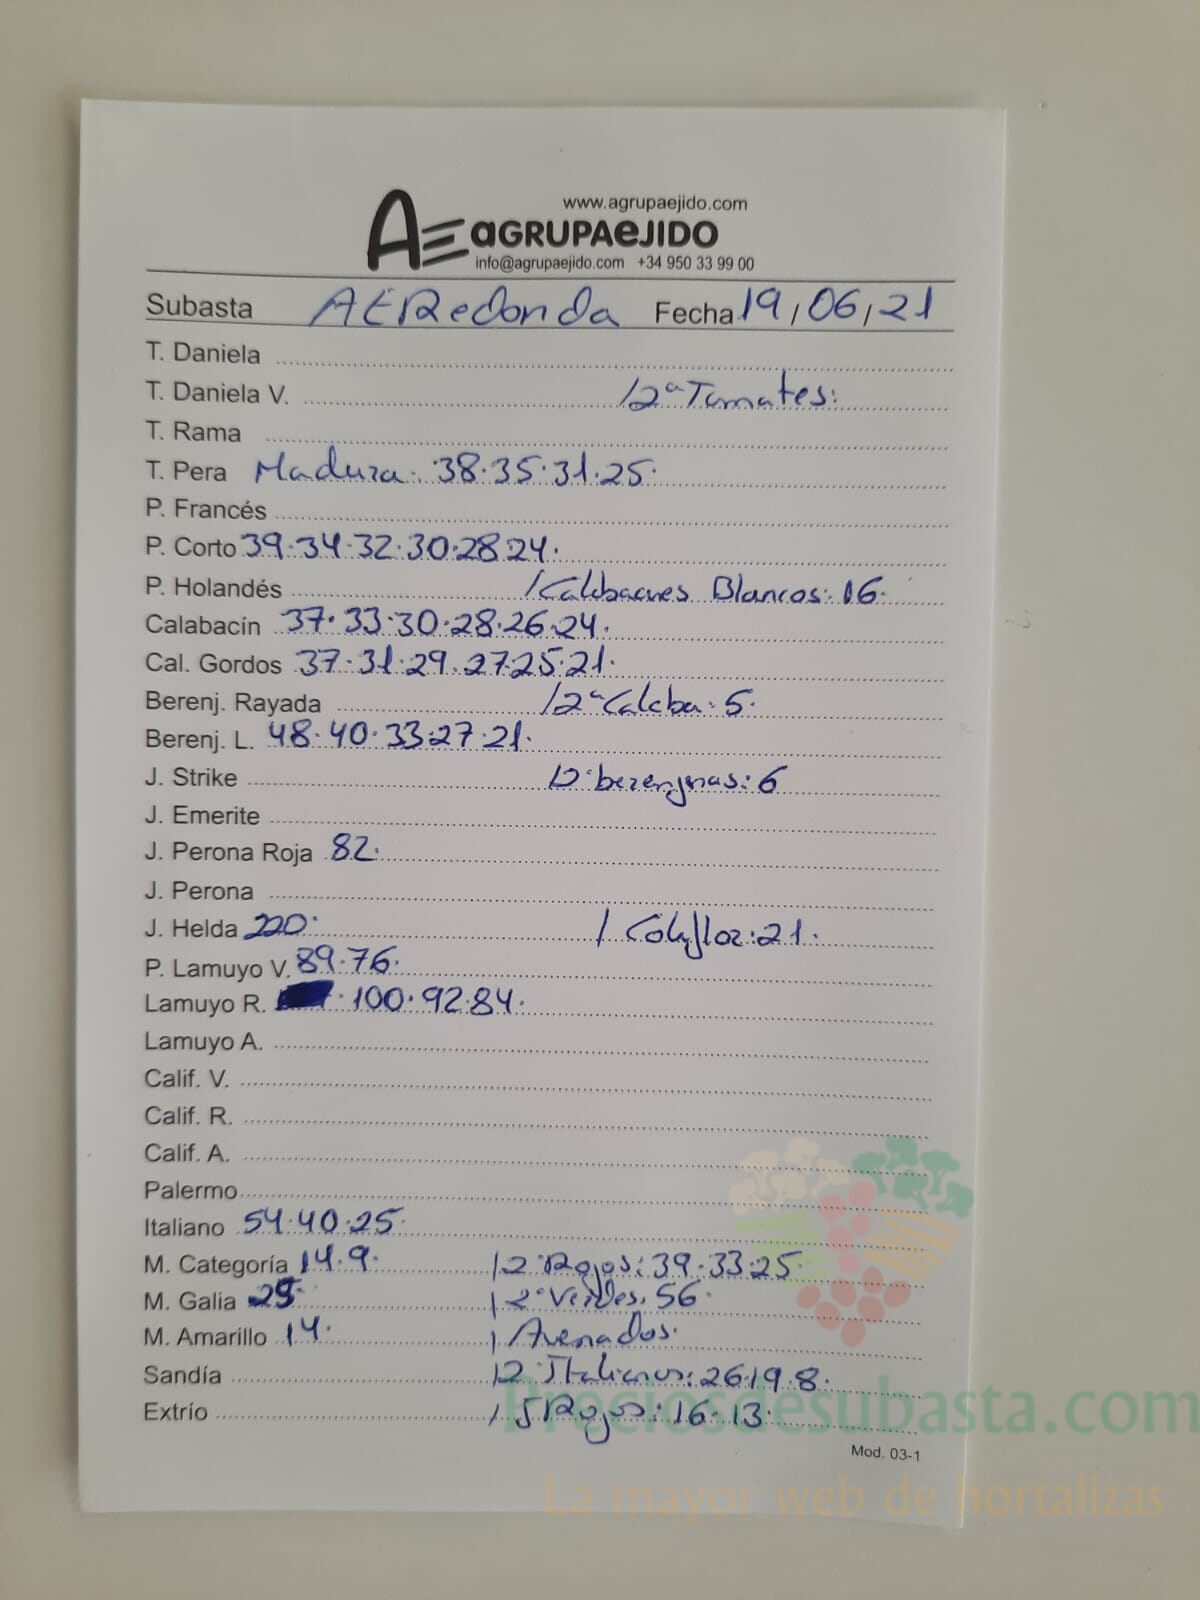 www.agrupaejido.com
AE aGRUPAeJIDO
info@agrupaejido.com +34 950 33 99 00
Subasta AE Redonda Fecha 19/06/21
T. Daniela
T. Daniela V. /2ª Tomates:
T. Rama
T. Pera Madura: 38·35·31·25·
P. Francés
P. Corto 39·34·32·30·28·24·
P. Holandés /Calabacines Blancos: 16·
Calabacín 37·33·30·28·26·24·
Cal. Gordos 37·31·29·27·25·21·
Berenj. Rayada /2ª Calaba: 5·
Berenj. L. 48·40·33·27·21·
J. Strike berenjenas: 6
J. Emerite
J. Perona Roja 82·
J. Perona
J. Helda 220· / Coliflor: 21·
P. Lamuyo V. 89·76·
Lamuyo R. 100·92·84·
Lamuyo A.
Calif. V.
Calif. R.
Calif. A.
Palermo
Italiano 54·40·25·
M. Categoría 14·9· /2ª Rojos: 39·33·25·
M. Galia 25· /2ª Verdes: 56·
M. Amarillo 14· /
Sandía /2ª Italianos: 26·19·8·
Extrío / Rojos: 16·13·
Mod. 03-1
Preciosdesubasta.com
La mayor web de hortalizas